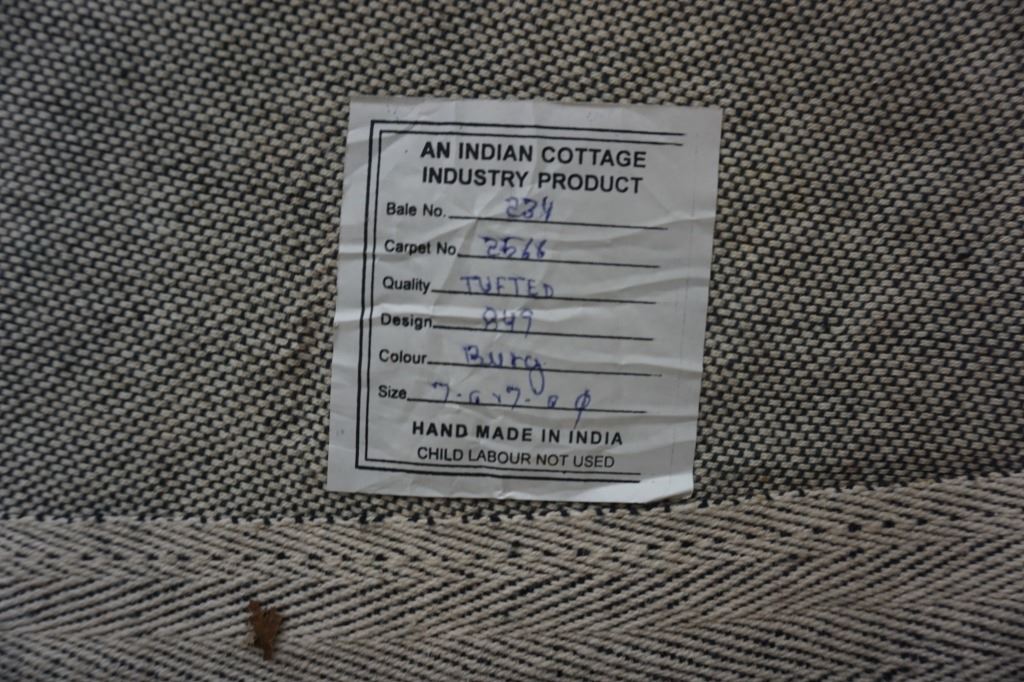 AN INDIAN COTTAGE
INDUSTRY PRODUCT
Bale No. 234
Carpet No. 2566
Quality TUFTED
Design 849
Colour Burg
Size
HAND MADE IN INDIA
CHILD LABOUR NOT USED